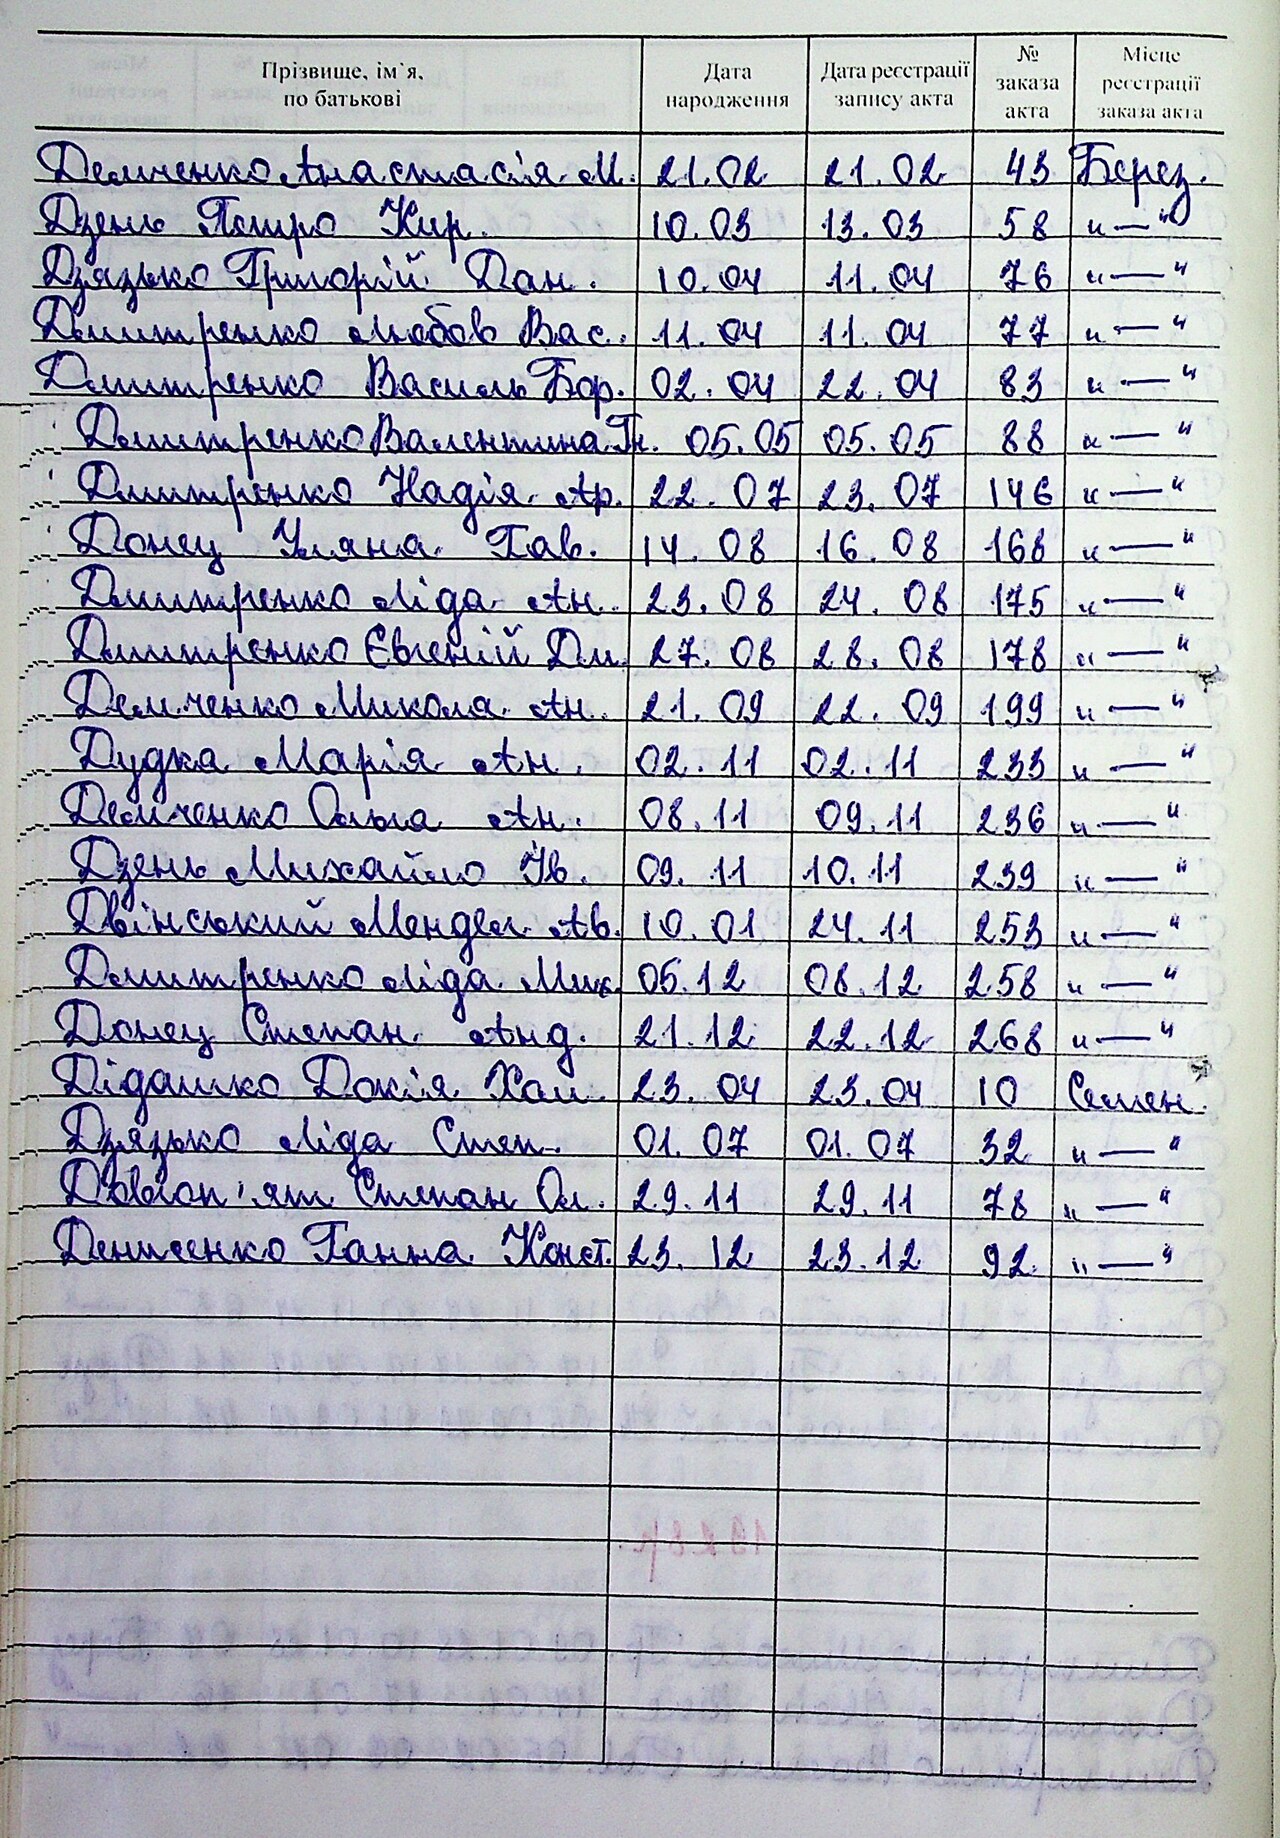 Прізвище, ім`я, по батькові Дата народження Дата реєстрації запису акта № заказа акта Місце реєстрації заказа акта
Демченко Анастасія М. 21.02 21.02 43 Берез.
Дзень Петро Кир. 10.03 13.03 58 "—"
Дзязько Григорій Дан. 10.04 11.04 76 "—"
Дмитренко Любов Вас. 11.04 11.04 77 "—"
Дмитренко Василь Бор. 02.04 22.04 83 "—"
Дмитренко Валентина Гн. 05.05 05.05 88 "—"
Дмитренко Надія Ар. 22.07 23.07 146 "—"
Донец Уляна Гав. 14.08 16.08 168 "—"
Дмитренко Ліда Ан. 23.08 24.08 175 "—"
Дмитренко Євгеній Дм. 27.08 28.08 178 "—"
Демченко Микола Ан. 21.09 22.09 199 "—"
Дудка Марія Ан. 02.11 02.11 233 "—"
Демченко Ольга Ан. 08.11 09.11 236 "—"
Дзень Михайло Ів. 09.11 10.11 239 "—"
Двінський Мендел Ав. 10.01 24.11 253 "—"
Дмитренко Ліда Мих. 05.12 08.12 258 "—"
Донец Степан Анд. 21.12 22.12 268 "—"
Дідашко Докія Хом. 23.04 23.04 10 Семен.
Дзязько Ліда Степ. 01.07 01.07 32 "—"
Степан Ол. 29.11 29.11 78 "—"
Денисенко Ганна Конст. 23.12 23.12 92 "—"